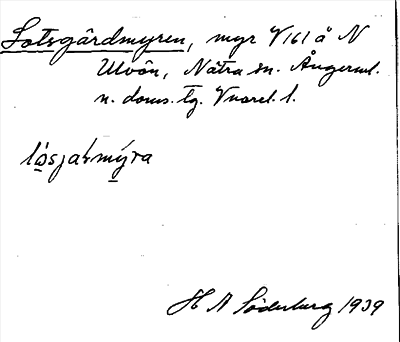 Lotsgårdmyren, myr V161 å N
Ulvön, Nätra sn. Ångerml.
n. doms. tg. Vnorrl. l.
H N Söderberg 1939